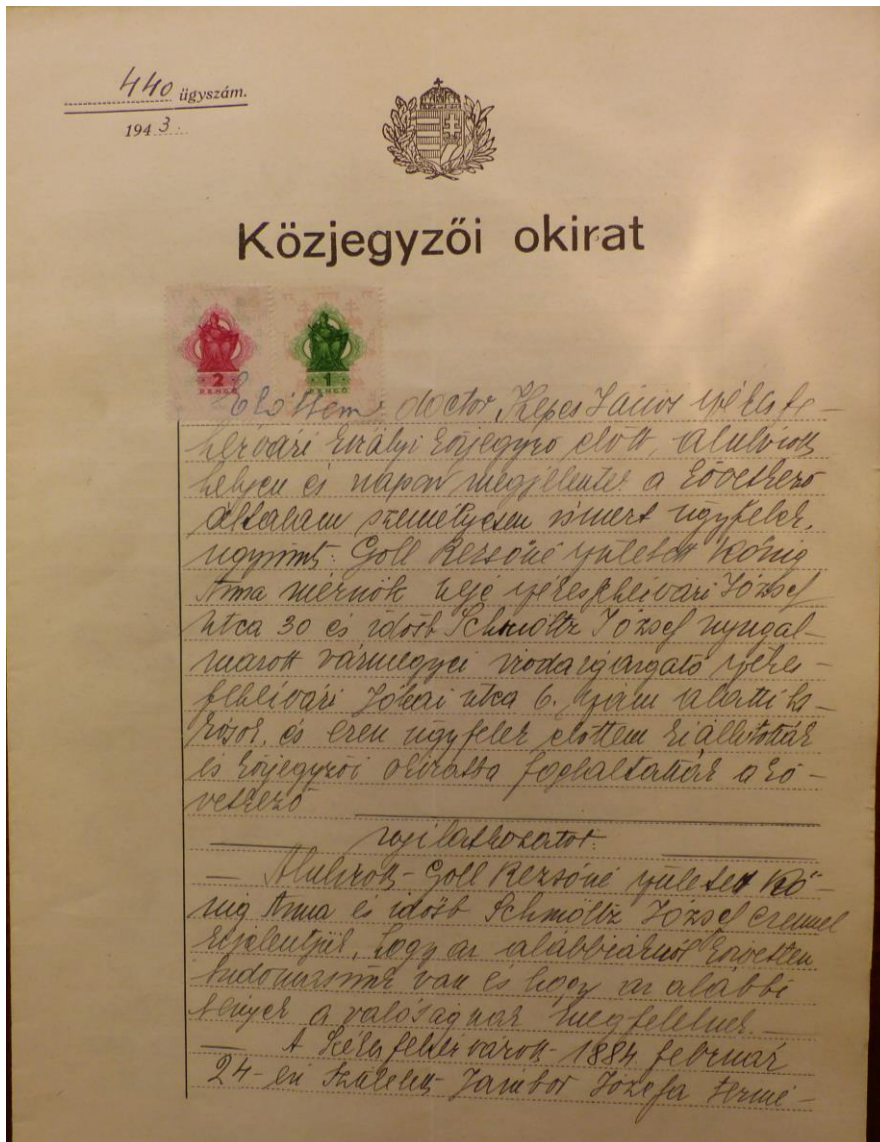 440 ügyszám.
194 3.
Közjegyzői okirat
2
PENGŐ
1
PENGŐ
Előttem doctor Kepes János székesfe-
hérvári királyi közjegyző előtt, alulirott
helyen és napon megjelentek a következő
általam személyesen ismert ügyfelek,
ugymint: Goll Rezsőné született König
Anna mérnök neje székesfehérvári József
utca 30 és idősb Schmöltz József nyugal-
mazott vármegyei irodaigazgató székes-
fehérvári Jókai utca 6. szám alatti la-
kosok, és ezen ügyfelek előttem kiállitották
és közjegyzői okiratba foglaltatták a kö-
vetkező
nyilatkozatot:
— Alulirott Goll Rezsőné született Kö-
nig Anna és idősb Schmöltz József ezennel
kijelentjük, hogy az alábbiakról közvetlen
tudomásunk van és hogy az alábbi
tények a valóságnak megfelelnek —
— A Székesfehérvárott 1884 február
24-én született Jámbor Józefa termé-